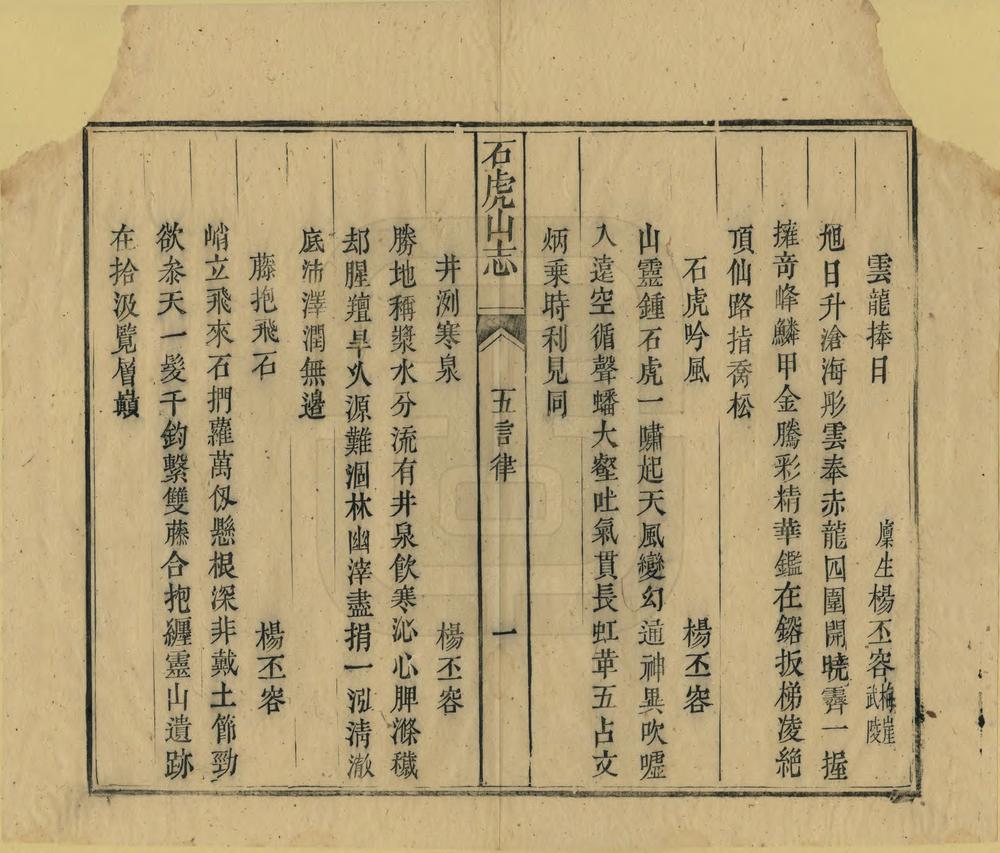 雲龍捧日
廩生楊丕容梅崖武陵
旭日升滄海彤雲奉赤龍四圍開曉霽一握
擁奇峰鱗甲金騰彩精華鑑在鎔扳梯凌絶
頂仙路指喬松
石虎吟風 楊丕容
山靈鍾石虎一嘯起天風變幻通神異吹噓
入遠空循聲蟠大壑吐氣貫長虹革五占文
炳乗時利見同
石虎山志 五言律 一
井洌寒泉 楊丕容
勝地稱漿水分流有井泉飲寒沁心脾滌穢
却腥羶旱久源難涸林幽滓盡捐一泓清澈
底沛澤潤無邊
藤抱飛石 楊丕容
峭立飛來石捫蘿萬仭懸根深非戴土節勁
欲叅天一髮千鈞繫雙藤合抱纏靈山遺跡
在拾汲覽層巔